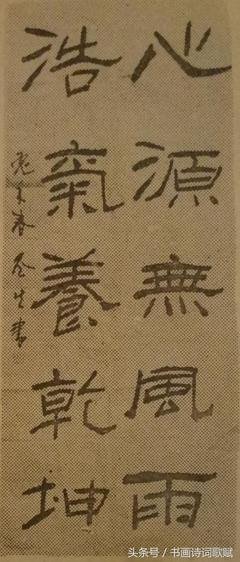 心源無風雨
浩氣養乾坤
头条号／书画诗词歌赋